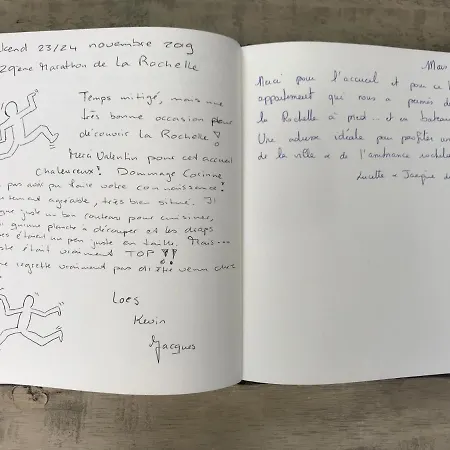 kend 23/24 novembre 2019
29ème Marathon de La Rochelle
Temps mitigé, mais une
très bonne occasion pour
découvrir La Rochelle !
Merci Valentin pour cet accueil
chaleureux! Dommage Corinne
pas avoir pu faire votre connaissance!
tement agréable, très bien situé. Il
que juste un bon couteau pour cuisiner,
guine planche à découper et les draps
étaient un peu juste en taille. Mais...
était vraiment TOP !!
ne regrette vraiment pas d'être venu chez
Loes
Kevin
Jacques
Mars
Merci pour l'accueil et pour ce
appartement qui nous a permis de
la Rochelle à pied... et en bateau
Une adresse idéale pour profiter
de la ville & de l'ambiance
Lucette &